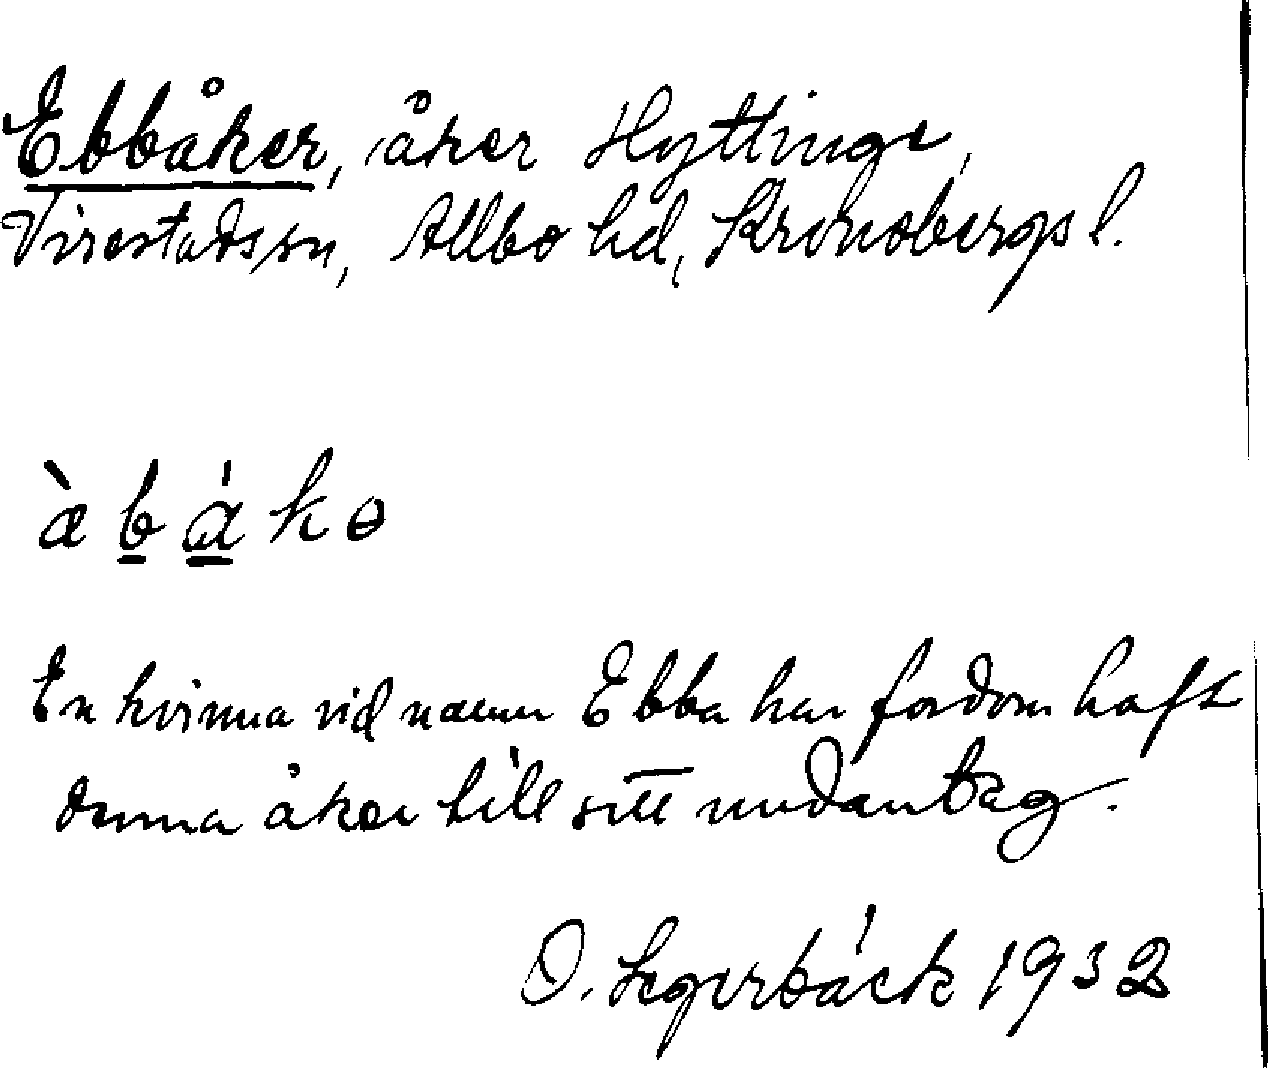 Ebbåker, åker Hyttinge,
Virestads sn, Allbo hd, Kronobergs l.
æ̀ b̲ á̲ k ə
En kvinna vid namn Ebba har fordom haft
denna åker till sitt undantag.
O. Segerbäck 1932